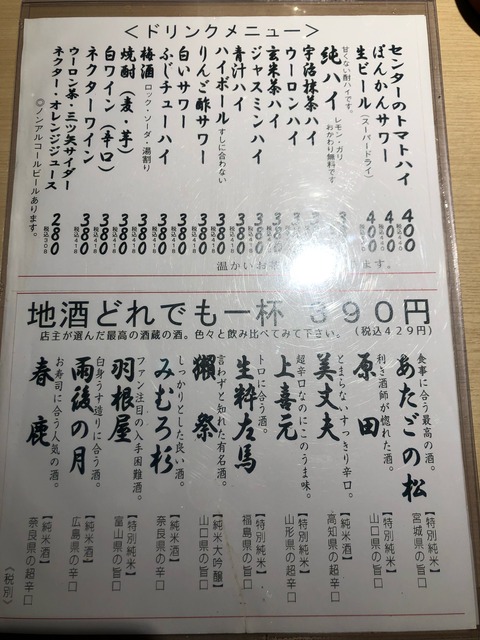 ＜ドリンクメニュー＞
センターのトマトハイ 400 税込440
ぽんかんサワー 400 税込440
生ビール（スーパードライ） 400
甘くない酎ハイです。
純ハイ レモン・ガリ おかわり無料です
宇治抹茶ハイ
ウーロンハイ
玄米茶ハイ
ジャスミンハイ 380
青汁ハイ 380
ハイボール すしに合わない 380
りんご酢サワー 380 税込418
白いサワー 380 税込418
ふじチューハイ 380 税込418
梅酒 ロック・ソーダ・湯割り 380 税込418
焼酎（麦・芋） 380 税込418
白ワイン（辛口） 380 税込418
ネクターワイン 380 税込418
ウーロン茶・三ツ矢サイダー
ネクター・オレンジジュース 280 税込308
◎ノンアルコールビールあります。
温かいお茶 ます。
地酒どれでも一杯 390円
店主が選んだ最高の酒蔵の酒。色々と飲み比べてみて下さい。（税込429円）
食事に合う最高の酒。
あたごの松 【特別純米】 宮城県の旨口
利き酒師が惚れた酒。
原田 【特別純米】 山口県の旨口
とまらないすっきり辛口。
美丈夫 【純米酒】 高知県の超辛口
超辛口なのにこのうま味。
上喜元 【特別純米】 山形県の超辛口
トロに合う酒。
生粋左馬 【特別純米】 福島県の旨口
言わずと知れた有名酒。
獺祭 【純米大吟醸】 山口県の旨口
しっかりとした良い酒。
みむろ杉 【純米酒】 奈良県の辛口
ファン注目の入手困難酒。
羽根屋 【特別純米】 富山県の旨口
白身うす造りに合う酒。
雨後の月 【純米酒】 広島県の辛口
お寿司に合う人気の酒。
春鹿 【純米酒】 奈良県の超辛口
（税別）